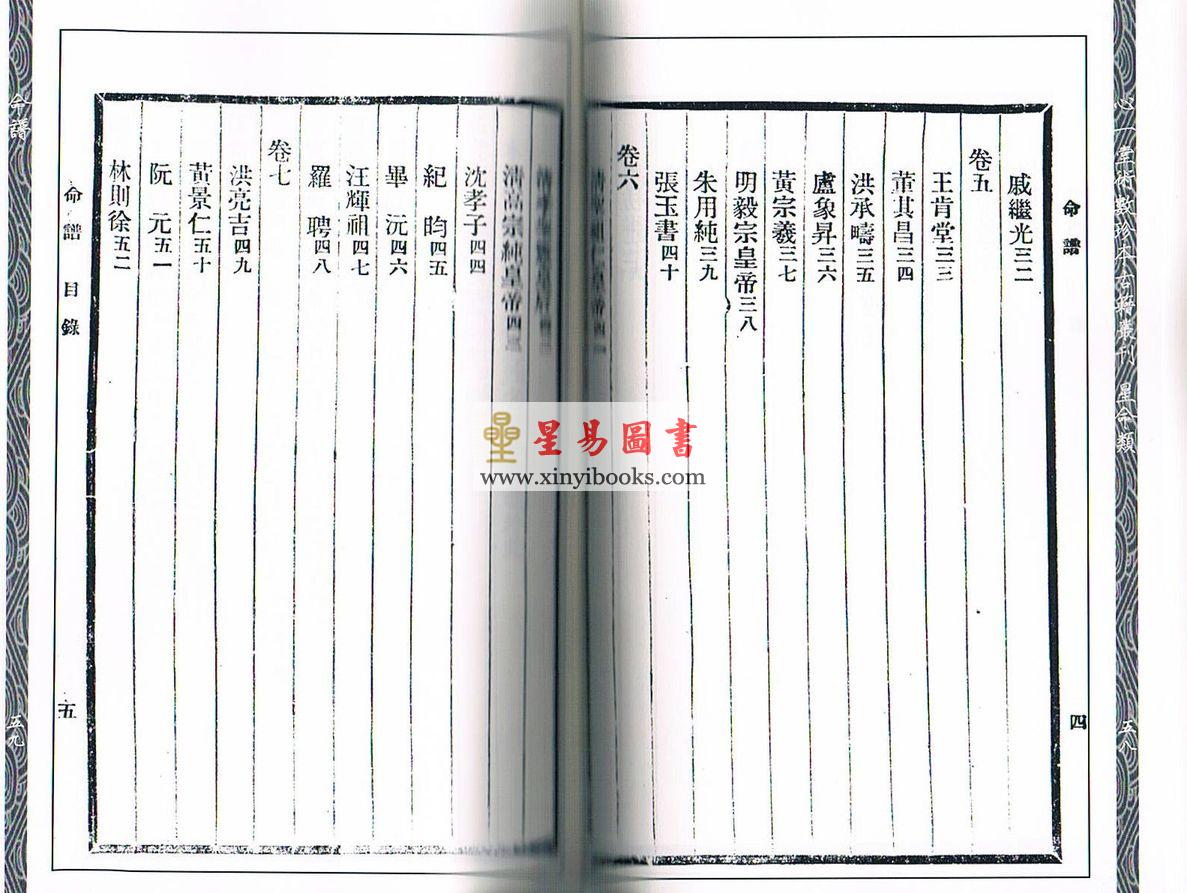 心一堂術數珍本古籍叢刊 星命類
五八
命譜
四
戚繼光三二
卷五
王肯堂三三
董其昌三四
洪承疇三五
盧象昇三六
黃宗羲三七
明毅宗皇帝三八
朱用純三九
張玉書四十
卷六
清聖祖仁皇帝四一
清高宗純皇帝四三
沈孝子四四
紀昀四五
畢沅四六
汪輝祖四七
羅聘四八
卷七
洪亮吉四九
黃景仁五十
阮元五一
林則徐五二
命譜 目錄
五
命譜
五九
星易圖書
www.xinyibooks.com